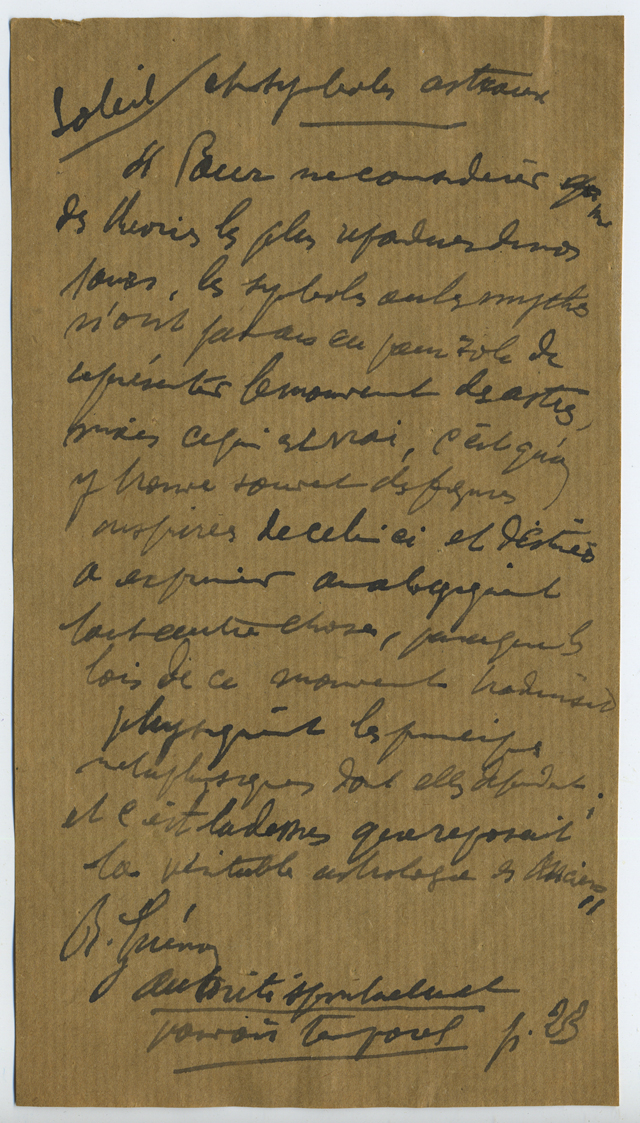 Soleil / et symboles astraux
" Pour ne considérer
des théories les plus répandues de nos
jours, les symboles ou les mythes
n'ont jamais eu pour rôle de
représenter le mouvement des astres,
mais ce qui est vrai, c'est qu'on
y trouve souvent des figures
inspirées de celui-ci et destinées
à exprimer analogiquement
tout autre chose, parce que les
lois de ce mouvement traduisent
physiquement les principes
métaphysiques dont elles dépendent ;
et c'est là-dessus que reposait
la véritable astrologie des Anciens "
R. Guénon
autorité spirituelle et
pouvoir temporel p. 23